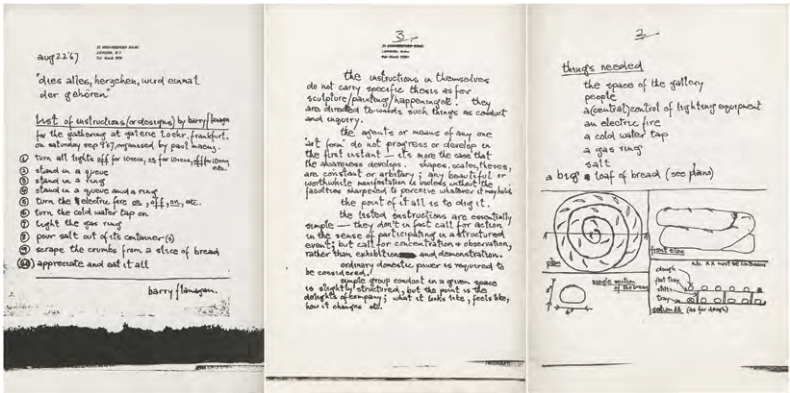 aug 22 '67
"dies alles, herzchen, wird einmal
der gehören"
list of instructions (or designs) by barry flanagan
for the gathering at galerie loehr, frankfurt.
on saturday sep 9 '67, organised by paul maenz.
① turn all lights off for 10 secs, on for 10 secs, off for 10 secs
etc.
② stand in a queue
③ stand in a ring
④ stand in a queue and a ring
⑤ turn the electric fire on, off, on, etc.
⑥ turn the cold water tap on
⑦ light the gas ring
⑧ pour salt out of its container(s)
⑨ scrape the crumbs from a slice of bread
⑩ appreciate and eat it all
barry flanagan.
3
the instructions in themselves
do not carry specific thesis as for
sculpture/painting/happening etc. they
are directed towards such things as conduct
and inquiry.
the agents or means of any one
'art form' do not progress or develop in
the first instant — it's more the case that
the awareness develops. shapes, scales, theses,
are constant or arbitary; any beautiful or
worthwhile manifestation is useless without the
faculties sharpened to perceive whatever it may hold
the point of it all is to dig it.
the listed instructions are essentially
simple — they don't in fact call for action
in the sense of participating in a structured
event; but call for concentration & observation,
rather than exhibition and demonstration.
ordinary domestic power is required to
be considered.
simple group conduct in a given space
is slightly structured, but the point is the
delights of company; what it looks like, feels like,
how it changes etc.
2
things needed
the space of the gallery
people
a (central) control of lighting equipment
an electric fire
a cold water tap
a gas ring
salt
a big loaf of bread (see plans)
plan
front elev.
n.b. AA must be continuous
single section
of the bread
6"
dough
tray
section AA (as for dough)